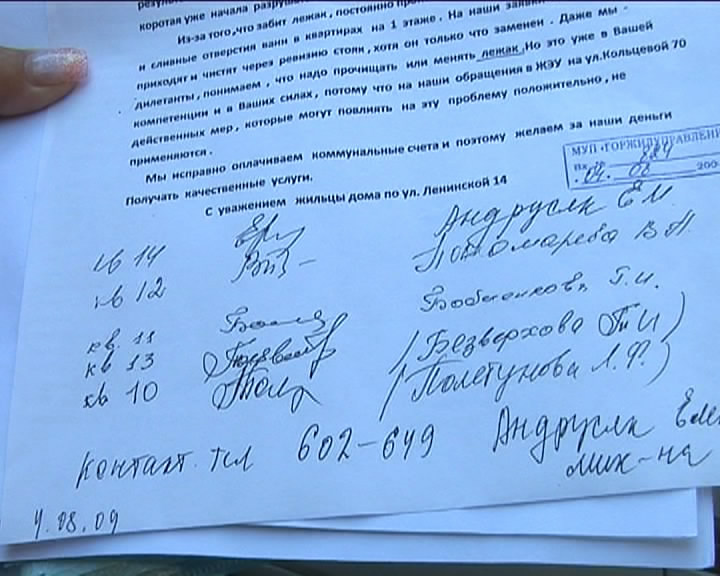 коротая уже начала разруша
Из-за того,что забит лежак, постоянно
и сливные отверстия ванн в квартирах на 1 этаже. На наши заявки
приходят и чистят через ревизию стояк, хотя он только что заменен. Даже мы -
дилетанты, понимаем, что надо прочищать или менять лежак. Но это уже в Вашей
компетенции и в Ваших силах, потому что на наши обращения в ЖЭУ на ул.Кольцевой 70
действенных мер, которые могут повлиять на эту проблему положительно, не
применяются.
Мы исправно оплачиваем коммунальные счета и поэтому желаем за наши деньги
Получать качественные услуги.
С уважением жильцы дома по ул. Ленинской 14
МУП «ГОРЖИЛУПРАВЛЕНИ
Вх. № 
04. 08 200
кв 14 Андрусяк Е М.
кв 12 Пономарева В А.
кв. 11 Г.И.
кв 13 (Безверхова Г И)
кв 10 (Полетунова Л.Ф.)
контакт. тел 602-649 Андрусяк Еле
мих-на
4.08.09